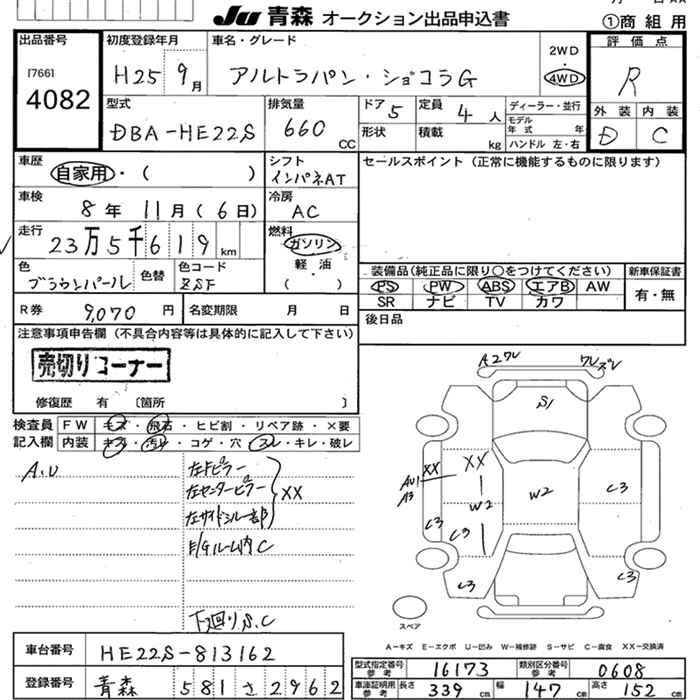 JU 青森 オークション出品申込書
①商組用
出品番号
17661
4082
初度登録年月
H25 9月
車名・グレード
アルトラパン・ショコラG
2WD
・
4WD
評価点
R
外装 内装
D C
型式
DBA-HE22S
排気量
660 CC
ドア 5
定員 4人
形状
積載 kg
ディーラー・並行
モデル年式 年
ハンドル 左・右
車歴
自家用・( )
シフト
インパネAT
セールスポイント(正常に機能するものに限ります)
車検
8年 11月(6日)
冷房
AC
走行
23万5千619km
燃料
ガソリン
軽・油
( ・ )
色
ブラウンパール
色替
色コード
ZSF
装備品(純正品に限り○をつけてください)
PS PW ABS エアB AW
SR ナビ TV カワ
新車保証書
有・無
R券 9,070円
名変期限 月 日
後日品
注意事項申告欄(不具合内容等は具体的に記入して下さい)
売切りコーナー
修復歴 有 〔箇所 〕
検査員
記入欄
FW キズ・飛石・ヒビ割・リペア跡・×要
内装 キズ・汚レ・コゲ・穴・スレ・キレ・破レ
A.U
左Fピラー
左センターピラー
左サイドシル一部
XX
E/Gルーム内C
下廻りS.C
A2ワレ
ワレズレ
S1
XX
XX
AU1
A3
W2
W2
C3
C3
C3
C3
C3
スペア
A-キズ E-エクボ U-凹み W-補修跡 S-サビ C-腐食 XX-交換済
車台番号
HE22S-813162
登録番号
青森 581 さ 2962
型式指定番号
参考
16173
類別区分番号
参考
0608
車庫証明用
参考
長さ 339cm
幅 147cm
高さ 152cm